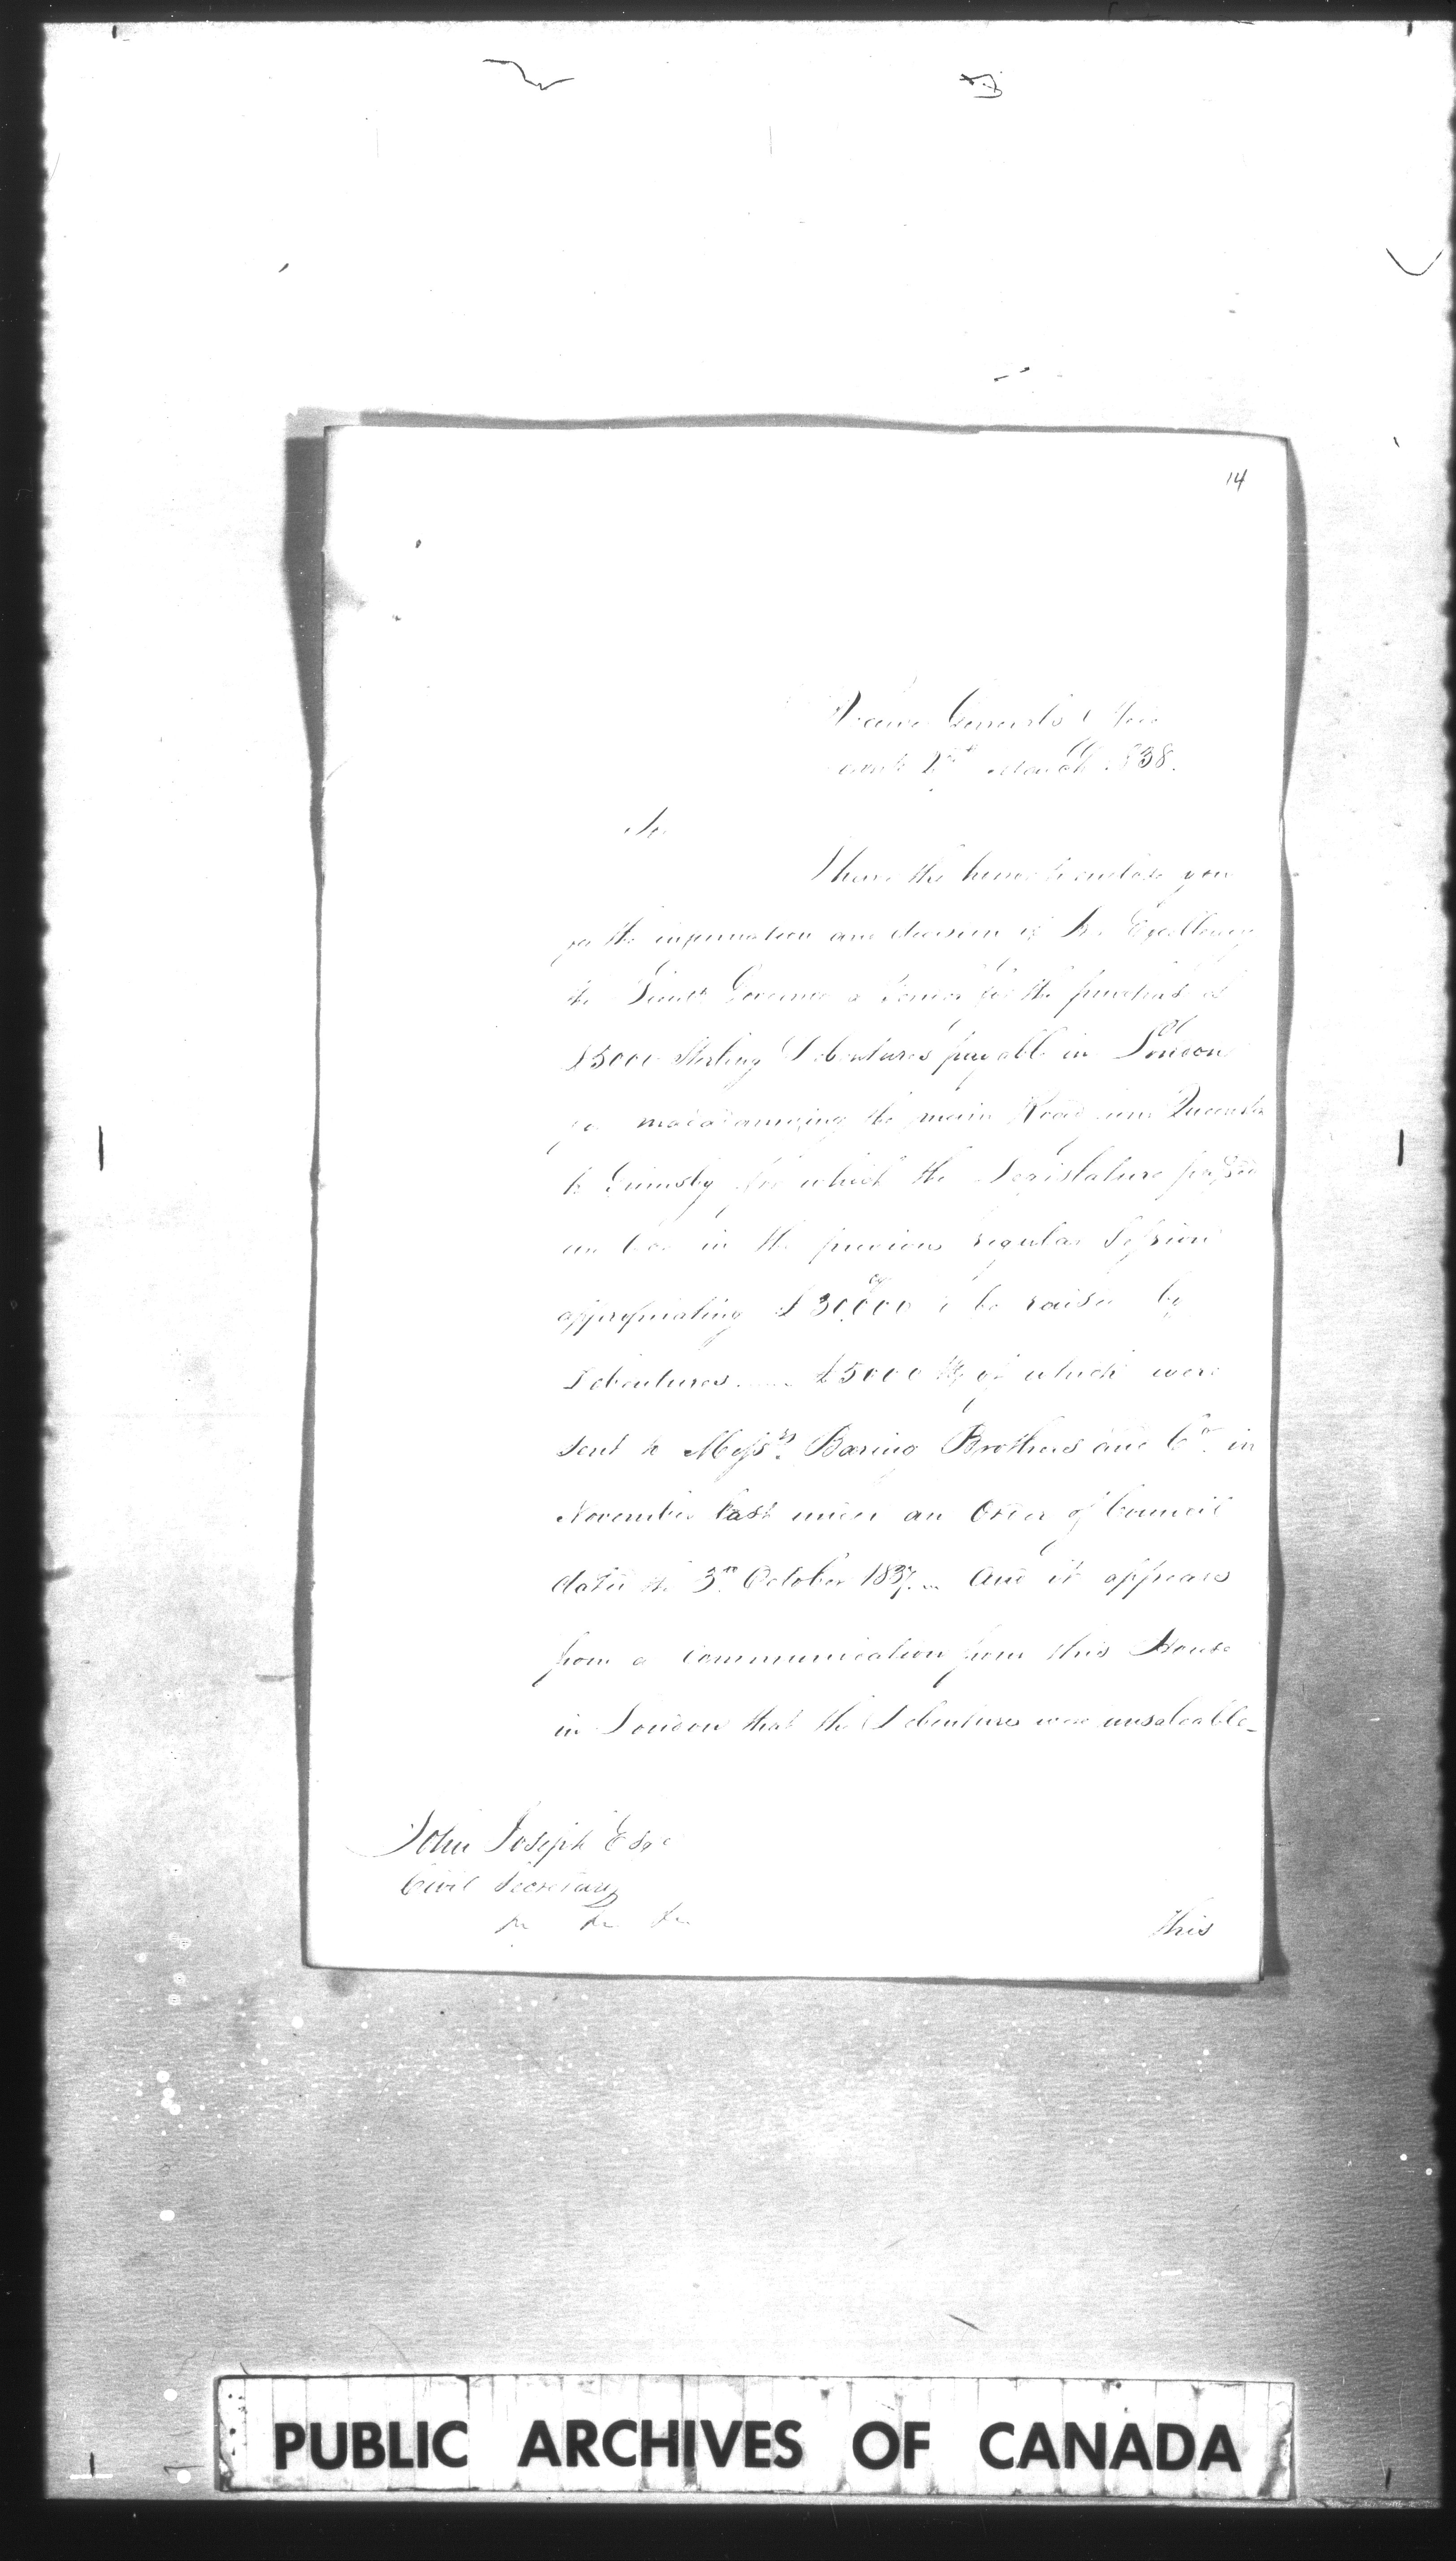 14
Receiver General's Office
March 1838.
Sir
I have the honor to enclose you
for the information and decision of His Excellency
the Lieut Governor a Tender for the purchase of
£5000 Sterling Debentures payable in London
for macadamizing the main Road from Queenston
to Grimsby for which the Legislature passed
an in the previous regular Session
appropriating £30,000 to be raised by
Debentures £5000 Stg of which were
sent to Messrs Baring Brothers and Co. in
November last under an Order of Council
dated the 3rd October 1837. And it appears
from a communication from this House
in London that the Debentures were unsaleable_
John Joseph Esqr
Civil Secretary
&c &c &c
this
PUBLIC ARCHIVES OF CANADA